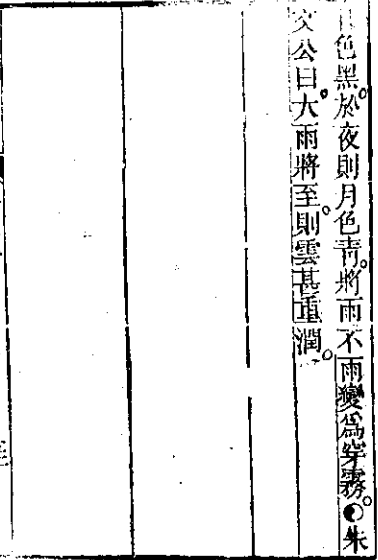 色黑於夜則月色青將雨不雨變爲穿霧朱
文公曰大雨將至則雲甚重潤